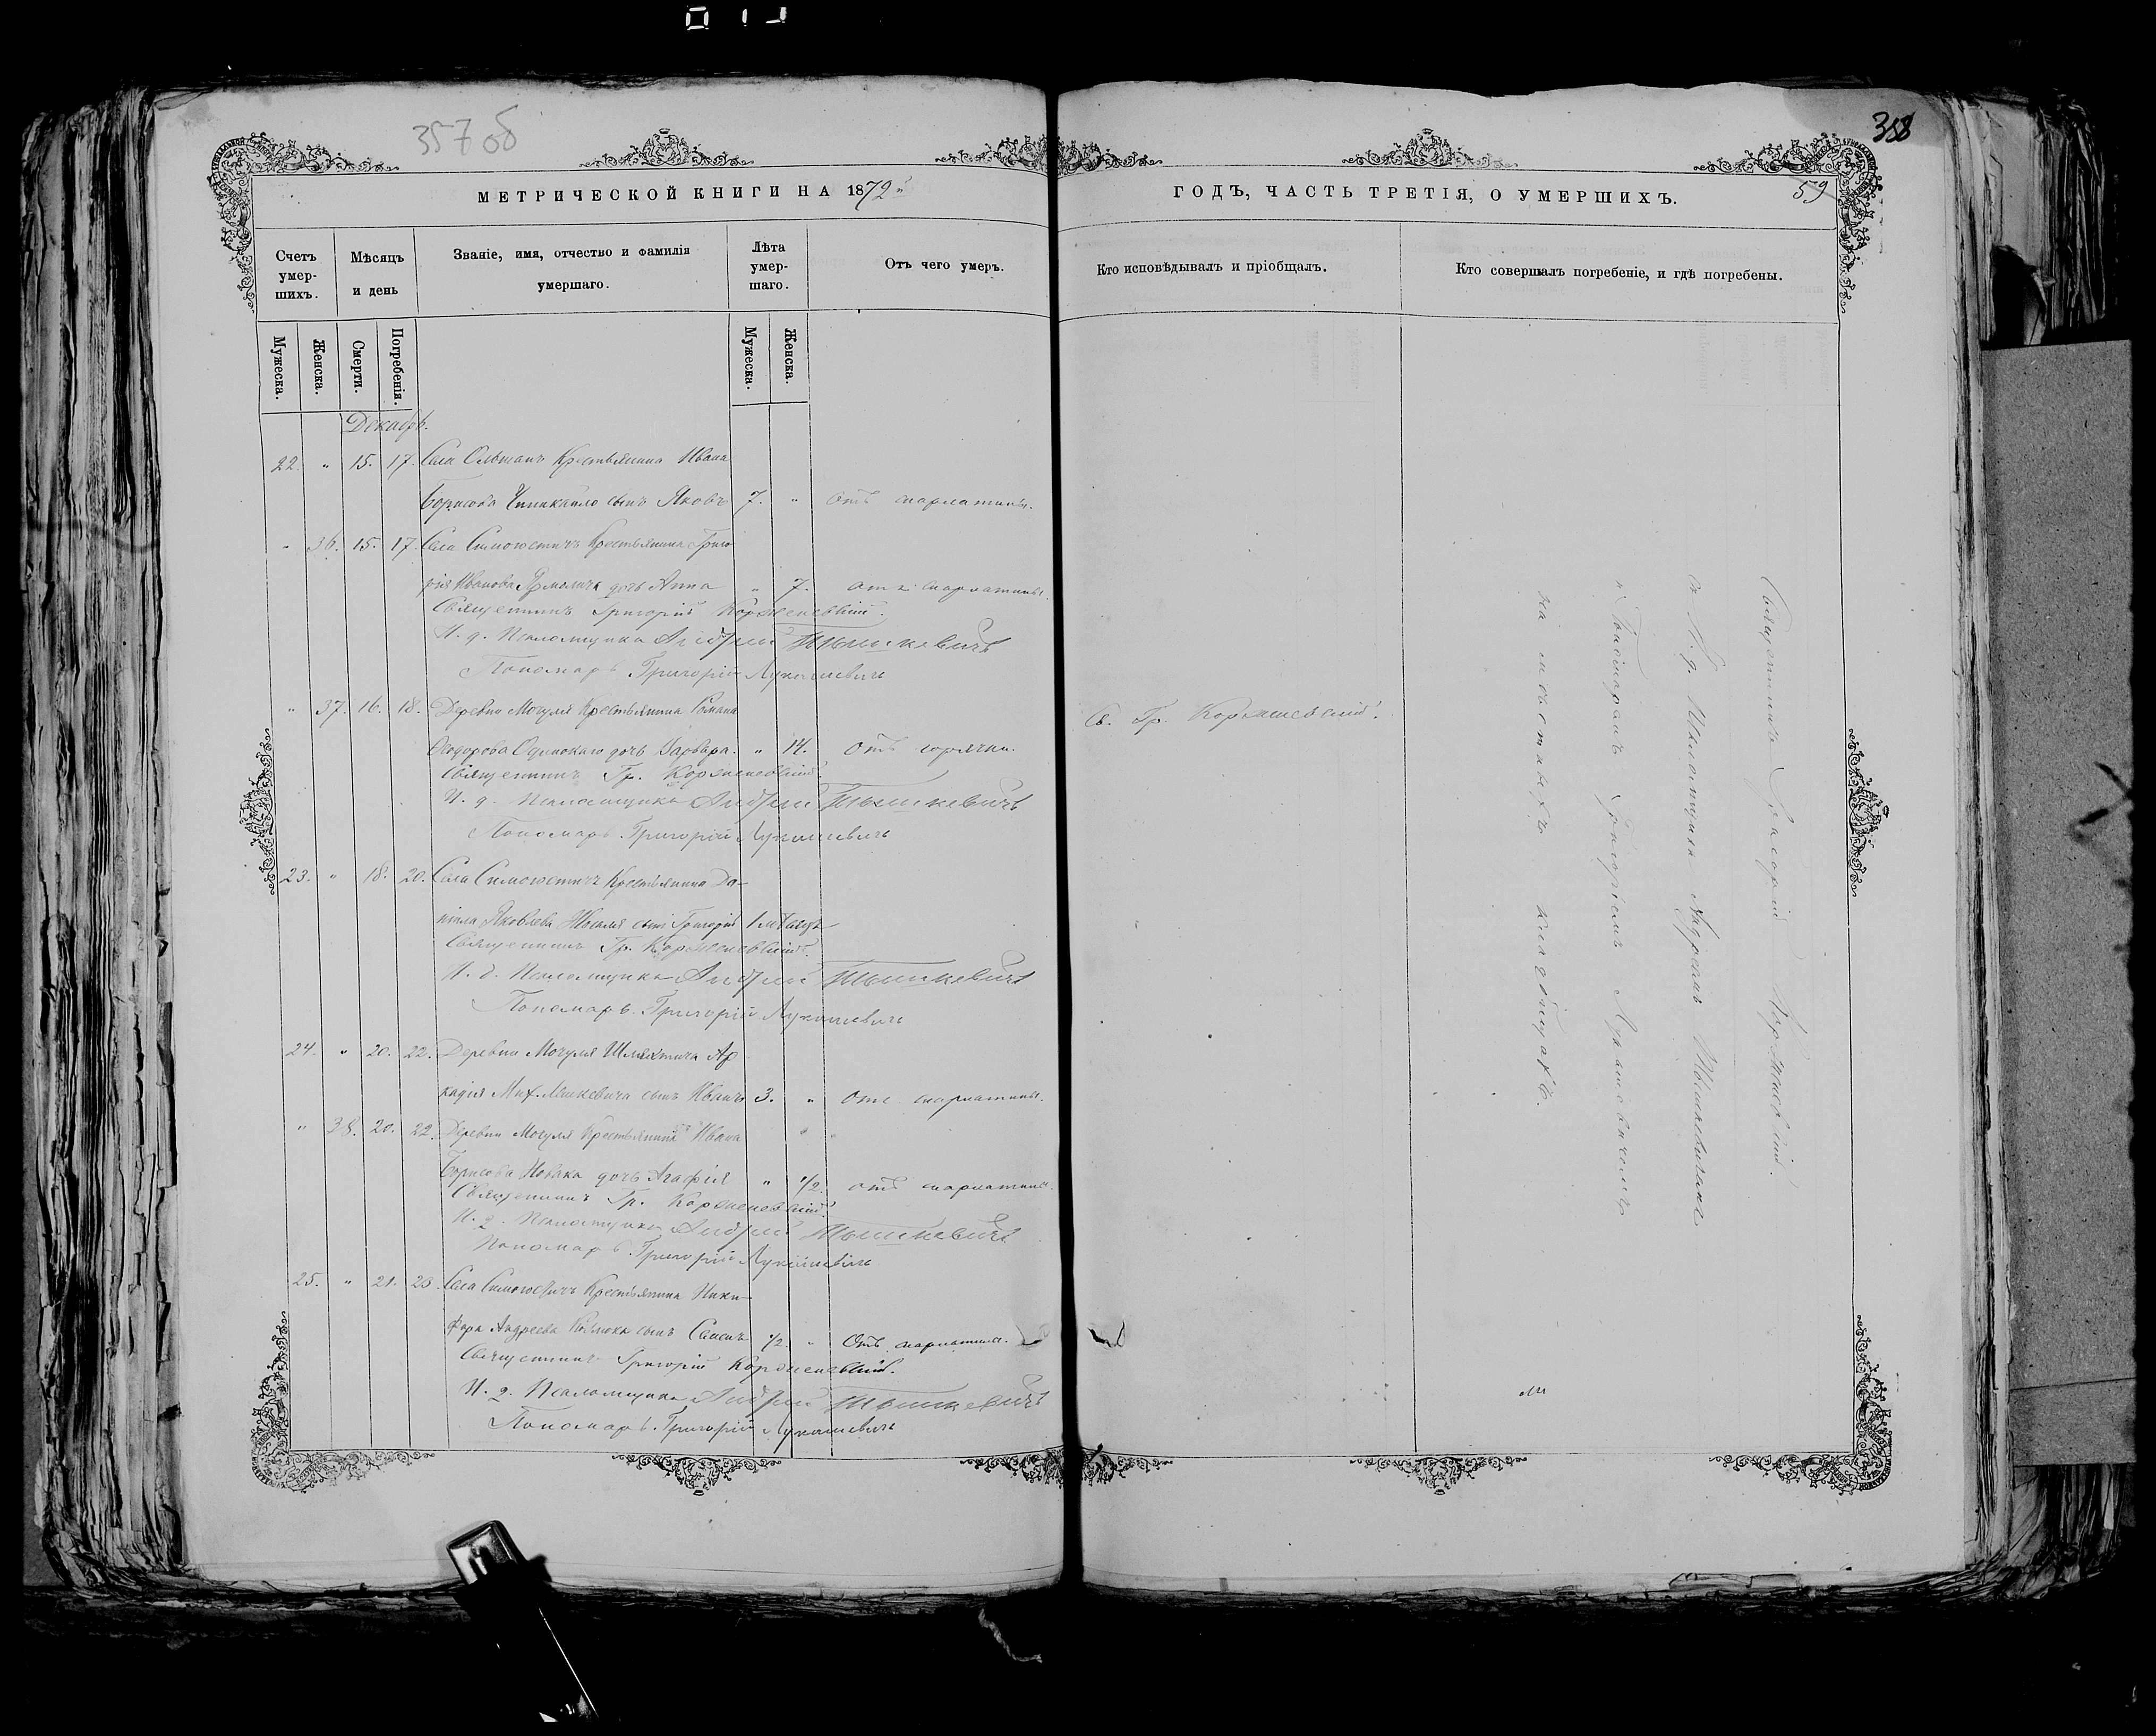 357 об
358
МЕТРИЧЕСКОЙ КНИГИ НА 1872й
ГОДЪ, ЧАСТЬ ТРЕТІЯ, О УМЕРШИХЪ.
59
Счетъ умер-шихъ.
Мѣсяцъ и день
Званіе, имя, отчество и фамилія умершаго.
Лѣта умер-шаго.
Отъ чего умеръ.
Кто исповѣдывалъ и пріобщалъ.
Кто совершалъ погребеніе, и гдѣ погребены.
Мужеска.
Женска.
Смерти.
Погребенія.
Мужеска.
Женска.
Декабрь.
22. " 15. 17. Села Ольшанъ Крестьянина Ивана
Борисова сынъ Яковъ 7. " Отъ скарлатины.
" 36. 15. 17. Села Симоновичъ Крестьянина Григо
рія Иванова Ярмолича дочь Анна " 7. отъ скарлатины.
Священникъ Григорій Корженевскій.
И. д. Псаломщика Андрей Тышкевичъ
Пономарь Григорій Лукашевичъ
" 37. 16. 18. Деревни Мочуля Крестьянина Романа
Ѳеодорова дочь Варвара. " 14. Отъ горячки.
Св. Гр. Корженевскій.
Священникъ Гр. Корженевскій.
И. д. Псаломщика Андрей Тышкевичъ
Пономарь Григорій Лукашевичъ
23. " 18. 20. Крестьянина Да-
ніила Яковлева сынъ Григорій 1 мѣсяцъ
Священникъ Гр. Корженевскій.
И. д. Псаломщика Андрей Тышкевичъ
Пономарь Григорій Лукашевичъ
24. " 20. 22. Деревни Мочуля Шляхтича Ар
кадія Мих. сынъ Иванъ 3. " Отъ скарлатины.
" 38. 20. 22. Деревни Мочуля Крестьянина Ивана
Борисова Новака дочь Агафія " 1/2. отъ скарлатины.
Священникъ Гр. Корженевскій.
И. д. Псаломщика Андрей Тышкевичъ
Пономарь Григорій Лукашевичъ
25. " 21. 23. Села Крестьянина Ники-
фора Андреева сынъ 1/2. " Отъ скарлатины.
Священникъ Григорій Корженевскій.
И. д. Псаломщика Андрей Тышкевичъ
Пономарь Григорій Лукашевичъ
Священникъ Григорій Корженевскій.
съ И. д. Псаломщика Андреемъ Тышкевичемъ
и Пономаремъ Григоріемъ Лукашевичемъ
на мѣстныхъ кладбищахъ.